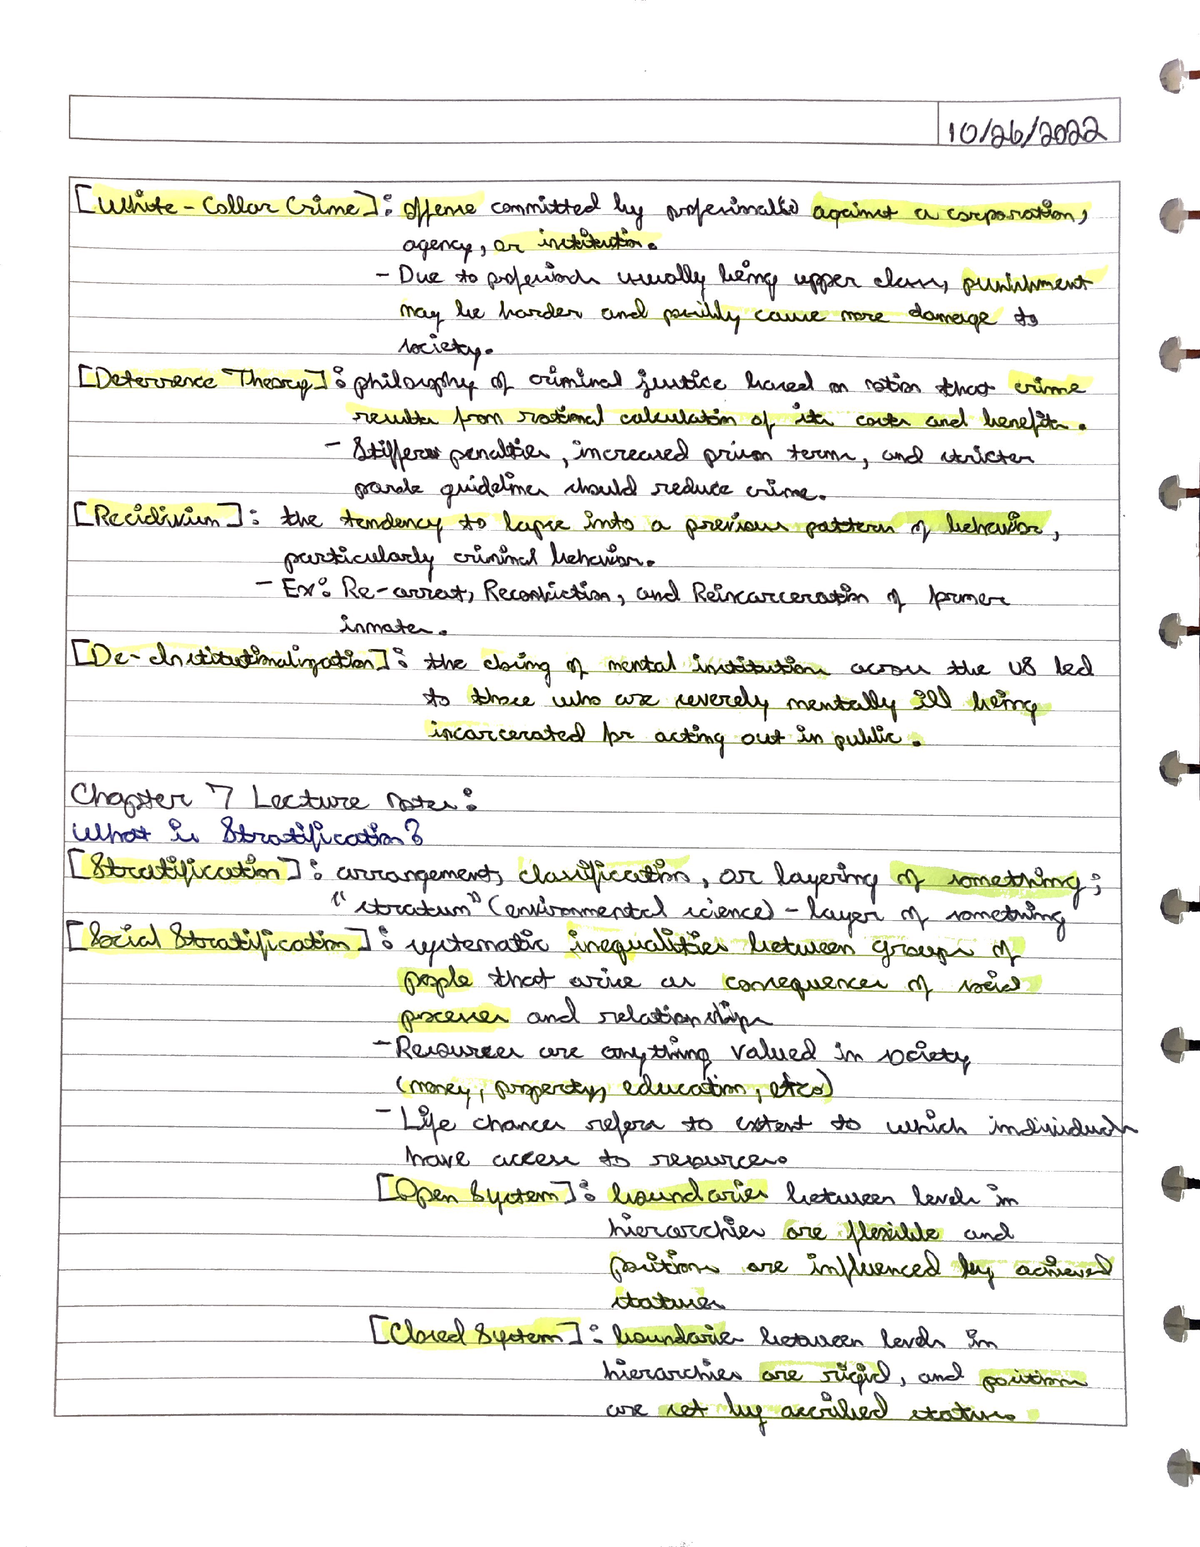 10/26/2022
[White-Collar Crime]: offense committed by professionals against a corporation,
agency, or institution.
- Due to professionals usually being upper class, punishment
may be harder and possibly cause more damage to
society.
[Deterrence Theory]: philosophy of criminal justice based on notion that crime
results from rational calculation of its costs and benefits.
- Stiffer penalties, increased prison terms, and stricter
parole guidelines should reduce crime.
[Recidivism]: the tendency to lapse into a previous pattern of behavior,
particularly criminal behavior.
- Ex: Re-arrest, Reconviction, and Reincarceration of former
inmates.
[De-Institutionalization]: the closing of mental institution across the US led
to those who are severely mentally ill being
incarcerated for acting out in public.
Chapter 7 Lecture Notes:
What is Stratification?
[Stratification]: arrangement, classification, or layering of something;
"stratum" (environmental science) - layer of something
[Social Stratification]: systematic inequalities between groups of
people that arise as consequences of social
processes and relationships
- Resources are anything valued in society
(money, property, education, etc.)
- Life chances refers to extent to which individuals
have access to resources.
[Open System]: boundaries between levels in
hierarchies are flexible and
positions are influenced by achieved
statuses
[Closed System]: boundaries between levels in
hierarchies are rigid, and positions
are set by ascribed status.